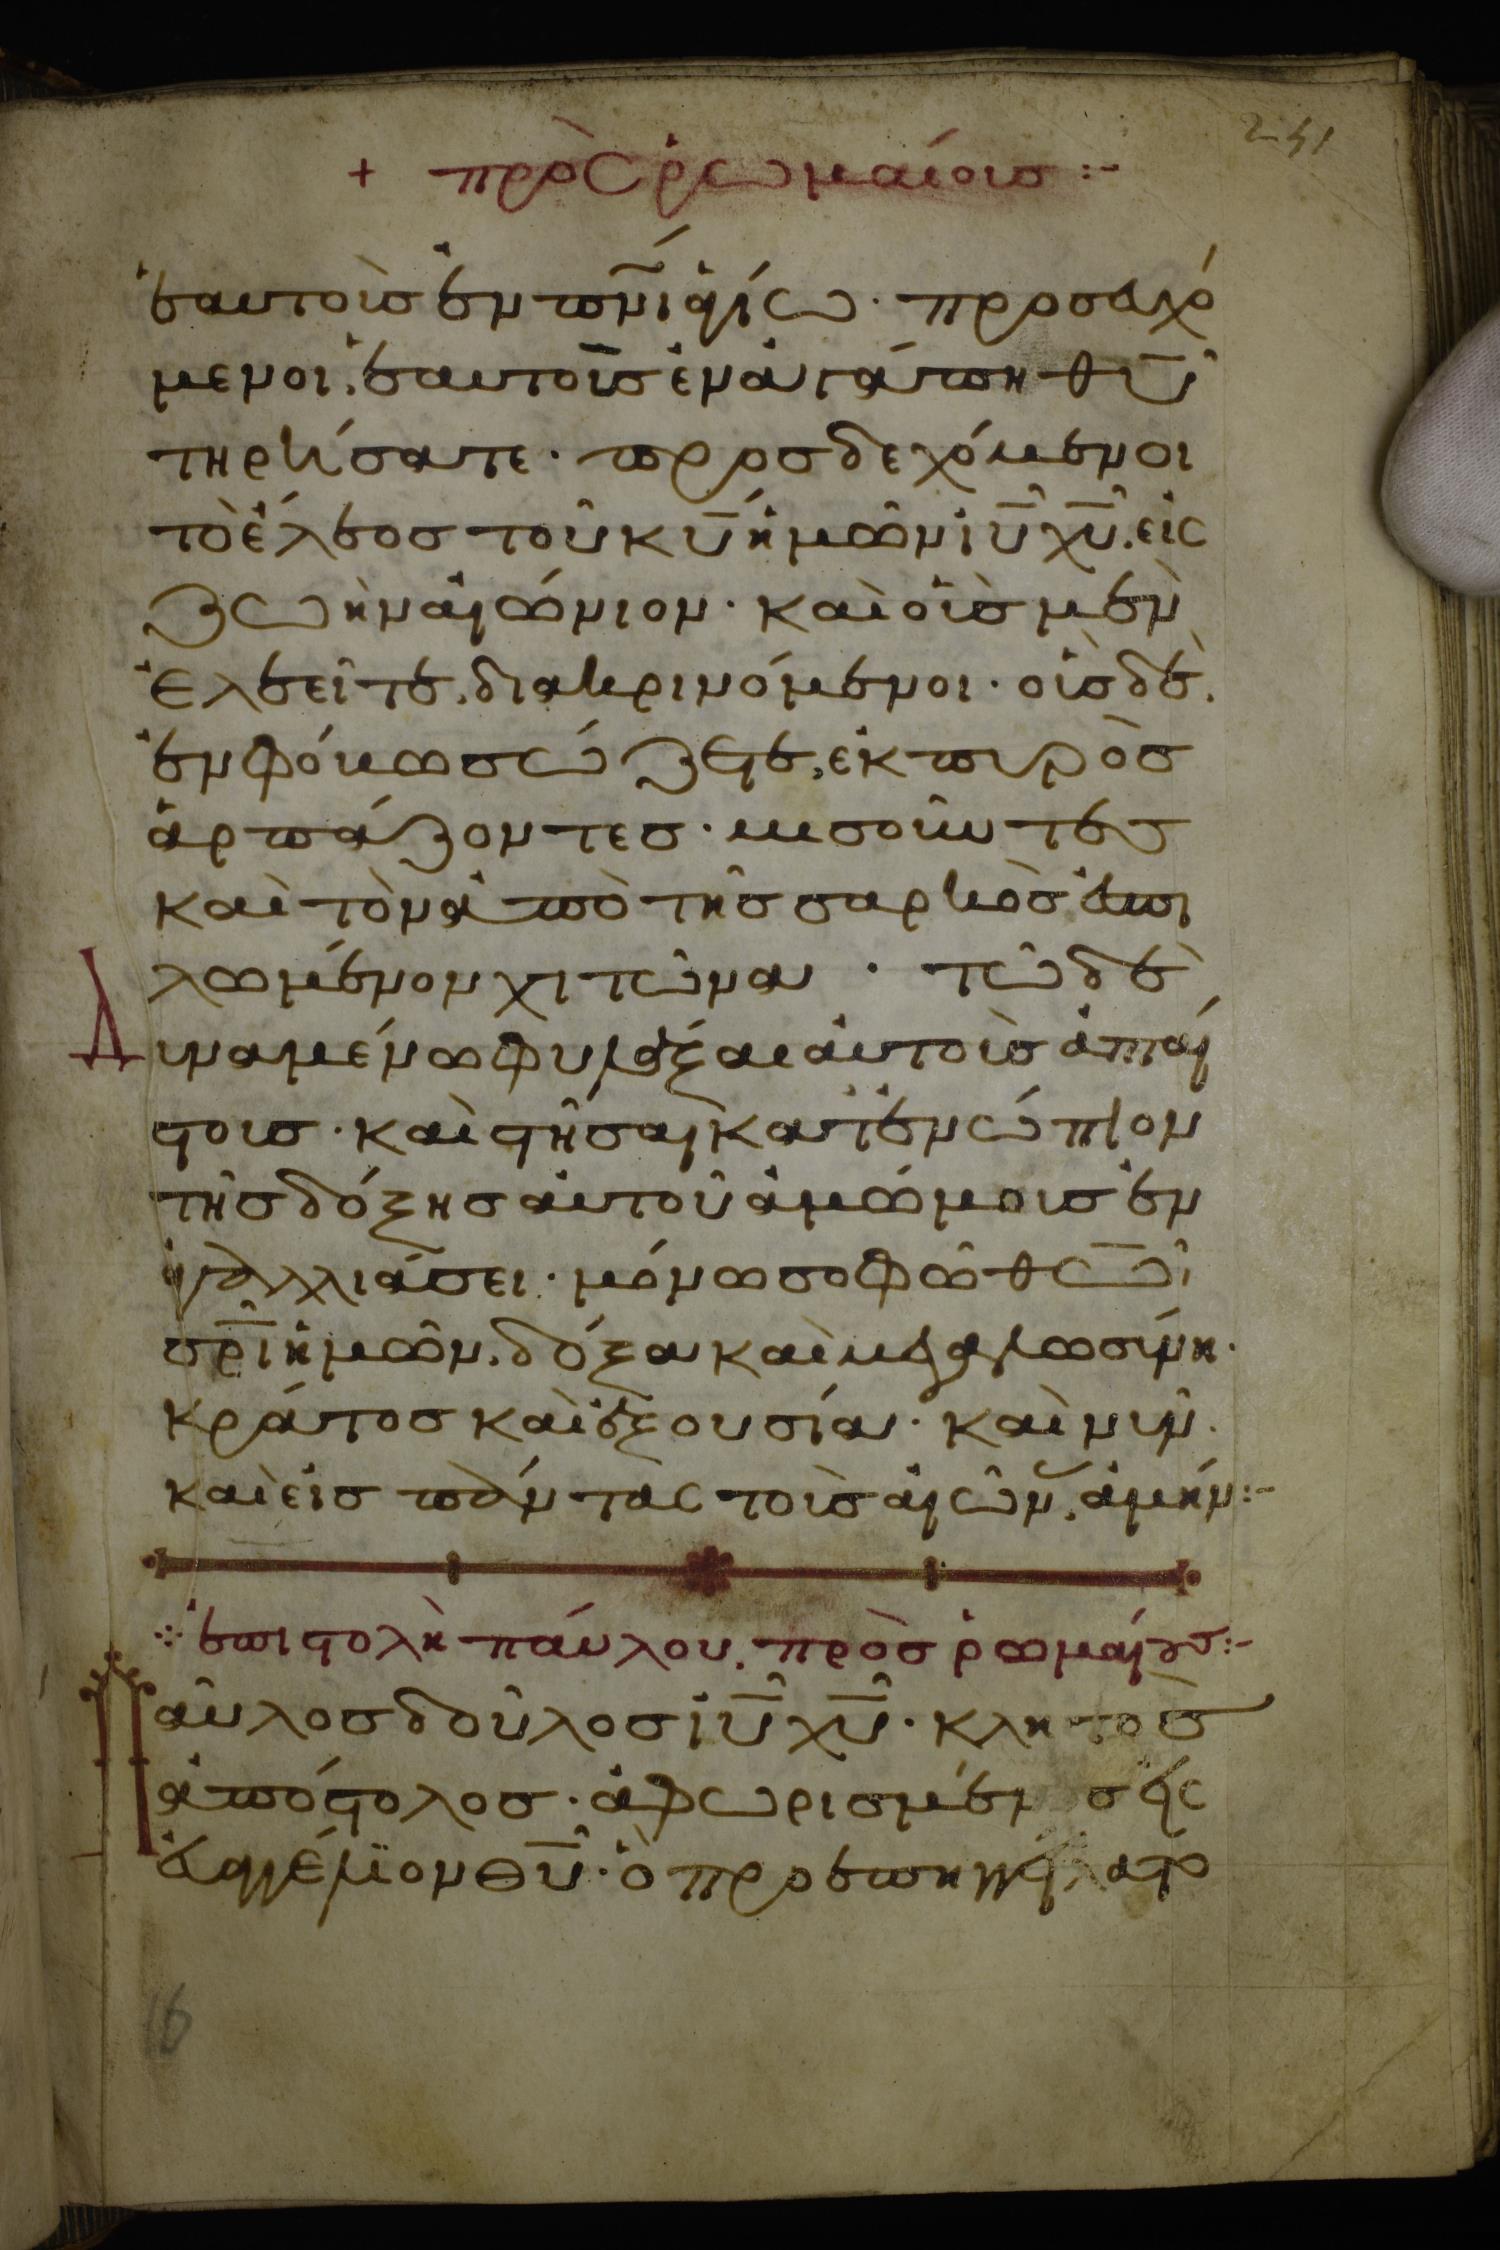 241
+ πρὸς ῥωμαίους :-
ἑαυτοὺς ἐν πν̅ι ἁγίω · προσευχό
μενοι, ἑαυτοὺς ἐν ἀγάπη θυ̅
τηρήσατε · προσδεχόμενοι
τὸ ἔλεος τοῦ κυ̅ ἡμῶν ιυ̅ χυ̅. εἰς
ζωὴν αἰώνιον · καὶ οὓς μὲν
ἐλεεῖτε, διακρινόμενοι · οὓς δὲ,
ἐν φόβω σώζετε, ἐκ πυρὸς
ἁρπάζοντες · μισοῦντες
καὶ τὸν ἀπὸ τῆς σαρκὸς ἐσπι
λωμένον χιτῶνα · τῶ δὲ
Δυναμένω φυλάξαι αὐτοὺς ἀπταί
στους · καὶ στῆσαι κατενώπιον
τῆς δόξης αὐτοῦ ἀμώμους ἐν
ἀγαλλιάσει · μόνω σοφῶ θω̅
σρ̅ι ἡμῶν, δόξα καὶ μεγαλωσύνη ·
κράτος καὶ ἐξουσία · καὶ νῦν ·
καὶ εἰς πάντας τοὺς αἰῶν, ἀμήν :-
ἐπιστολὴ παύλου, πρὸς ῥωμαίους :-
Παῦλος δοῦλος ιυ̅ χυ̅ · κλητὸς
ἀπόστολος · ἀφωρισμέν σ εἰς
εὐαγγέλιον θυ̅ · ὃ προεπηγγείλατο
16